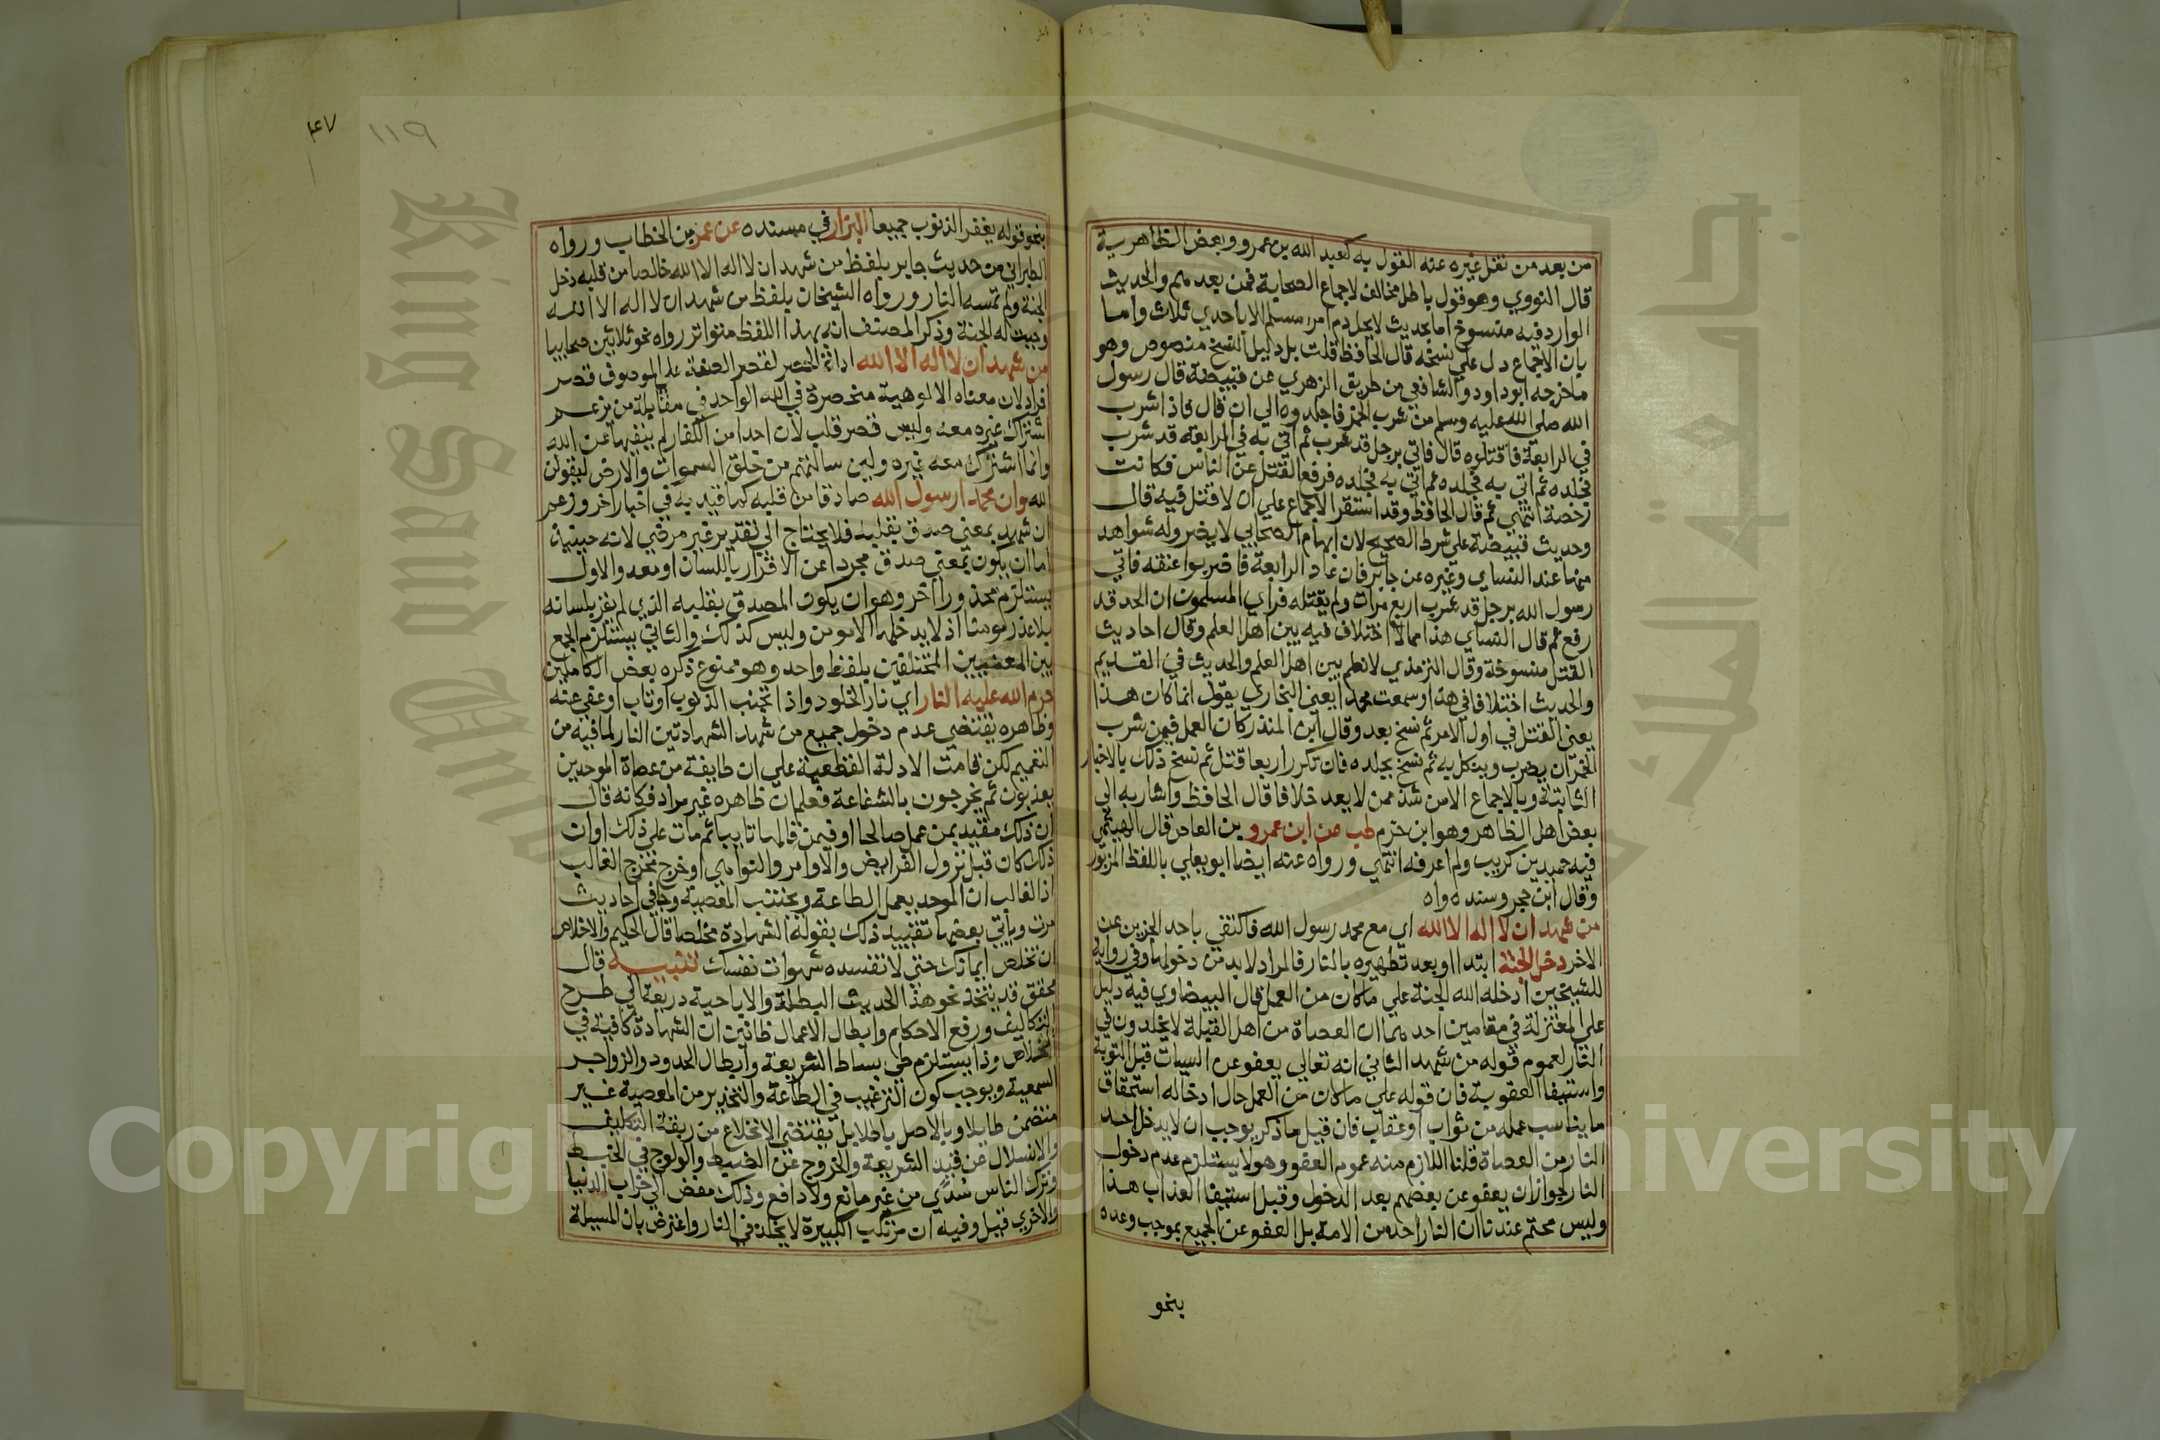 من بعد من نقل غيره عنه القول به كعبد الله بن عمرو وبعض الظاهرية
قال النووي وهو قول باطل مخالف لاجماع الصحابة فمن بعدهم والحديث
الوارد فيه منسوخ اما بحديث لا يحل دم امرء مسلم الا باحدي ثلاث واما
بان الاجماع دل علي نسخه قال الحافظ قلت بل دليل النسخ منصوص وهو
ما خرجه ابو داود والشافعي من طريق الزهري عن قبيصة قال رسول
الله صلي الله عليه وسلم من شرب الخمر فاجلدوه الي ان قال فاذا شرب
في الرابعة فاقتلوه قال فاتي برجل قد شرب ثم اتي به في الرابعة قد شرب
فجلده ثم اتي به فجلده ثم اتي به فجلده فرفع القتل عن الناس فكانت
رخصة انتهي ثم قال الحافظ وقد استقر الاجماع علي ان لا قتل فيه قال
وحديث قبيصة علي شرط الصحيح لان ابهام الصحابي لا يضر وله شواهد
منها عند النساي وغيره عن جابر فان عاد الرابعة فاضربوا عنقه فاتي
رسول الله برجل قد شرب اربع مرات ولم يقتله فراي المسلمون ان الحد قد
رفع ثم قال النساي هذا مما لا اختلاف فيه بين اهل العلم وقال احاديث
القتل منسوخة وقال الترمذي لا نعلم بين اهل العلم والحديث في القديم
والحديث اختلافا في هذا وسمعت محمدا يعني البخاري يقول انما كان هذا
يعني القتل في اول الامر ثم نسخ بعد وقال ابن المنذر كان العمل فيمن شرب
الخمر ان يضرب وينكل به ثم نسخ بجلده فان تكرر اربعا قتل ثم نسخ ذلك بالاخبار
الثابتة وبالاجماع الا من شذ ممن لا يعد خلافا قال الحافظ واشار به الي
بعض اهل الظاهر وهو ابن حزم طب عن ابن عمرو بن العاص قال الهيثمي
فيه حميد بن كريب ولم اعرفه انتهي ورواه عنه ايضا ابو يعلي باللفظ المزبور
وقال ابن حجر وسنده واه
من شهد ان لا اله الا الله اي مع محمد رسول الله فاكتفي باحد الجزين عن
الاخر دخل الجنة ابتدا او بعد تطهيره بالنار فالمراد لا بد من دخولها وفي رواية
للشيخين ادخله الله الجنة علي ما كان من العمل قال البيضاوي فيه دليل
علي المعتزلة في مقامين احدهما ان العصاة من اهل القبلة لا يخلدون في
النار لعموم قوله من شهد الثاني انه تعالي يعفو عن السيات قبل التوبة
واستيفا العقوبة فان قوله علي ما كان من العمل حال ادخاله استحقاق
ما يناسب عمله من ثواب او عقاب فان قيل ما ذكر يوجب ان لا يدخل احد
النار من العصاة قلنا اللازم منه عموم العفو وهو لا يستلزم عدم دخول
النار لجواز ان يعفو عن بعضهم بعد الدخول وقبل استيفا العذاب هذا
وليس محتم عندنا ان النار احد من الامة بل العفو عن الجميع بموجب وعده
بنحو
١١٩
بنحو قوله يغفر الذنوب جميعا البزار في مسنده عن عمر بن الخطاب ورواه
الطبراني من حديث جابر بلفظ من شهد ان لا اله الا الله خالصا من قلبه دخل
الجنة ولم تمسه النار ورواه الشيخان بلفظ من شهد ان لا اله الا الله
وجبت له الجنة وذكر المصنف انه بهذا اللفظ متواتر رواه نحو ثلاثين صحابيا
من شهد ان لا اله الا الله اداة الحصر لقصر الصفة علي الموصوف قصر
افراد لان معناه الالوهية منحصرة في الله الواحد في مقابلة من يزعم
اشتراك غيره معه وليس قصر قلب لان احدا من الكفار لم ينفها عن الله
وانما اشترك معه غيره ولين سالتهم من خلق السموات والارض ليقولن
الله وان محمدا رسول الله صادقا من قلبه كما قيد به في اخبار اخر وزعم
ان شهد بمعني صدق بقلبه فلا يحتاج الي تقدير غير مرضي لانه حينيذ
اما ان يكون بمعني صدق مجردا عن الاقرار باللسان او معه والاول
يستلزم محذورا اخر وهو ان يكون المصدق بقلبه الذي لم يقر بلسانه
بلا عذر مومنا اذ لا يدخلها الا مومن وليس كذلك والثاني يستلزم الجمع
بين المعنيين المختلفين بلفظ واحد وهو ممنوع ذكره بعض الكاملين
حرم الله عليه النار اي نار الخلود واذا تجنب الذنوب او تاب او عفي عنه
وظاهره يقتضي عدم دخول جميع من شهد الشهادتين النار لما فيه من
التعميم لكن قامت الادلة القطعية علي ان طايفة من عصاة الموحدين
يعذبون ثم يخرجون بالشفاعة فعلم ان ظاهره غير مراد فكانه قال
ان ذلك مقيد بمن عمل صالحا او فيمن قالها تايبا ثم مات علي ذلك او ان
ذلك كان قبل نزول الفرايض والاوامر والنواهي او خرج مخرج الغالب
اذ الغالب ان الموحد يعمل الطاعة ويجتنب المعصية وجا في احاديث
مرت وياتي بعضها تقييد ذلك بقوله الشهادة مخلصا قال الحكيم والاخلاص
ان تخلص ايمانك حتي لا تفسده شهوات نفسك تنبيه قال
محقق قد يتخذ نحو هذا الحديث البطلة والاباحية ذريعة الي طرح
التكاليف ورفع الاحكام وابطال الاعمال ظانين ان الشهادة كافية في
الخلاص وذا يستلزم طي بساط الشريعة وابطال الحدود والزواجر
السمعية ويوجب كون الترغيب في الطاعة والتحذير من المعصية غير
متضمن طايلا وبالاصل باطلا بل يقتضي الانخلاع من ربقة التكليف
والانسلال عن قيد الشريعة والخروج عن الضبط والولوج في الخبط
وترك الناس سدي من غير مانع ولا دافع وذلك مفض الي خراب الدنيا
والاخري قيل وفيه ان مرتكب الكبيرة لا يخلد في النار واعترض بان المسيلة
جامعة الملك سعود
King Saud University
Copyright © King Saud University